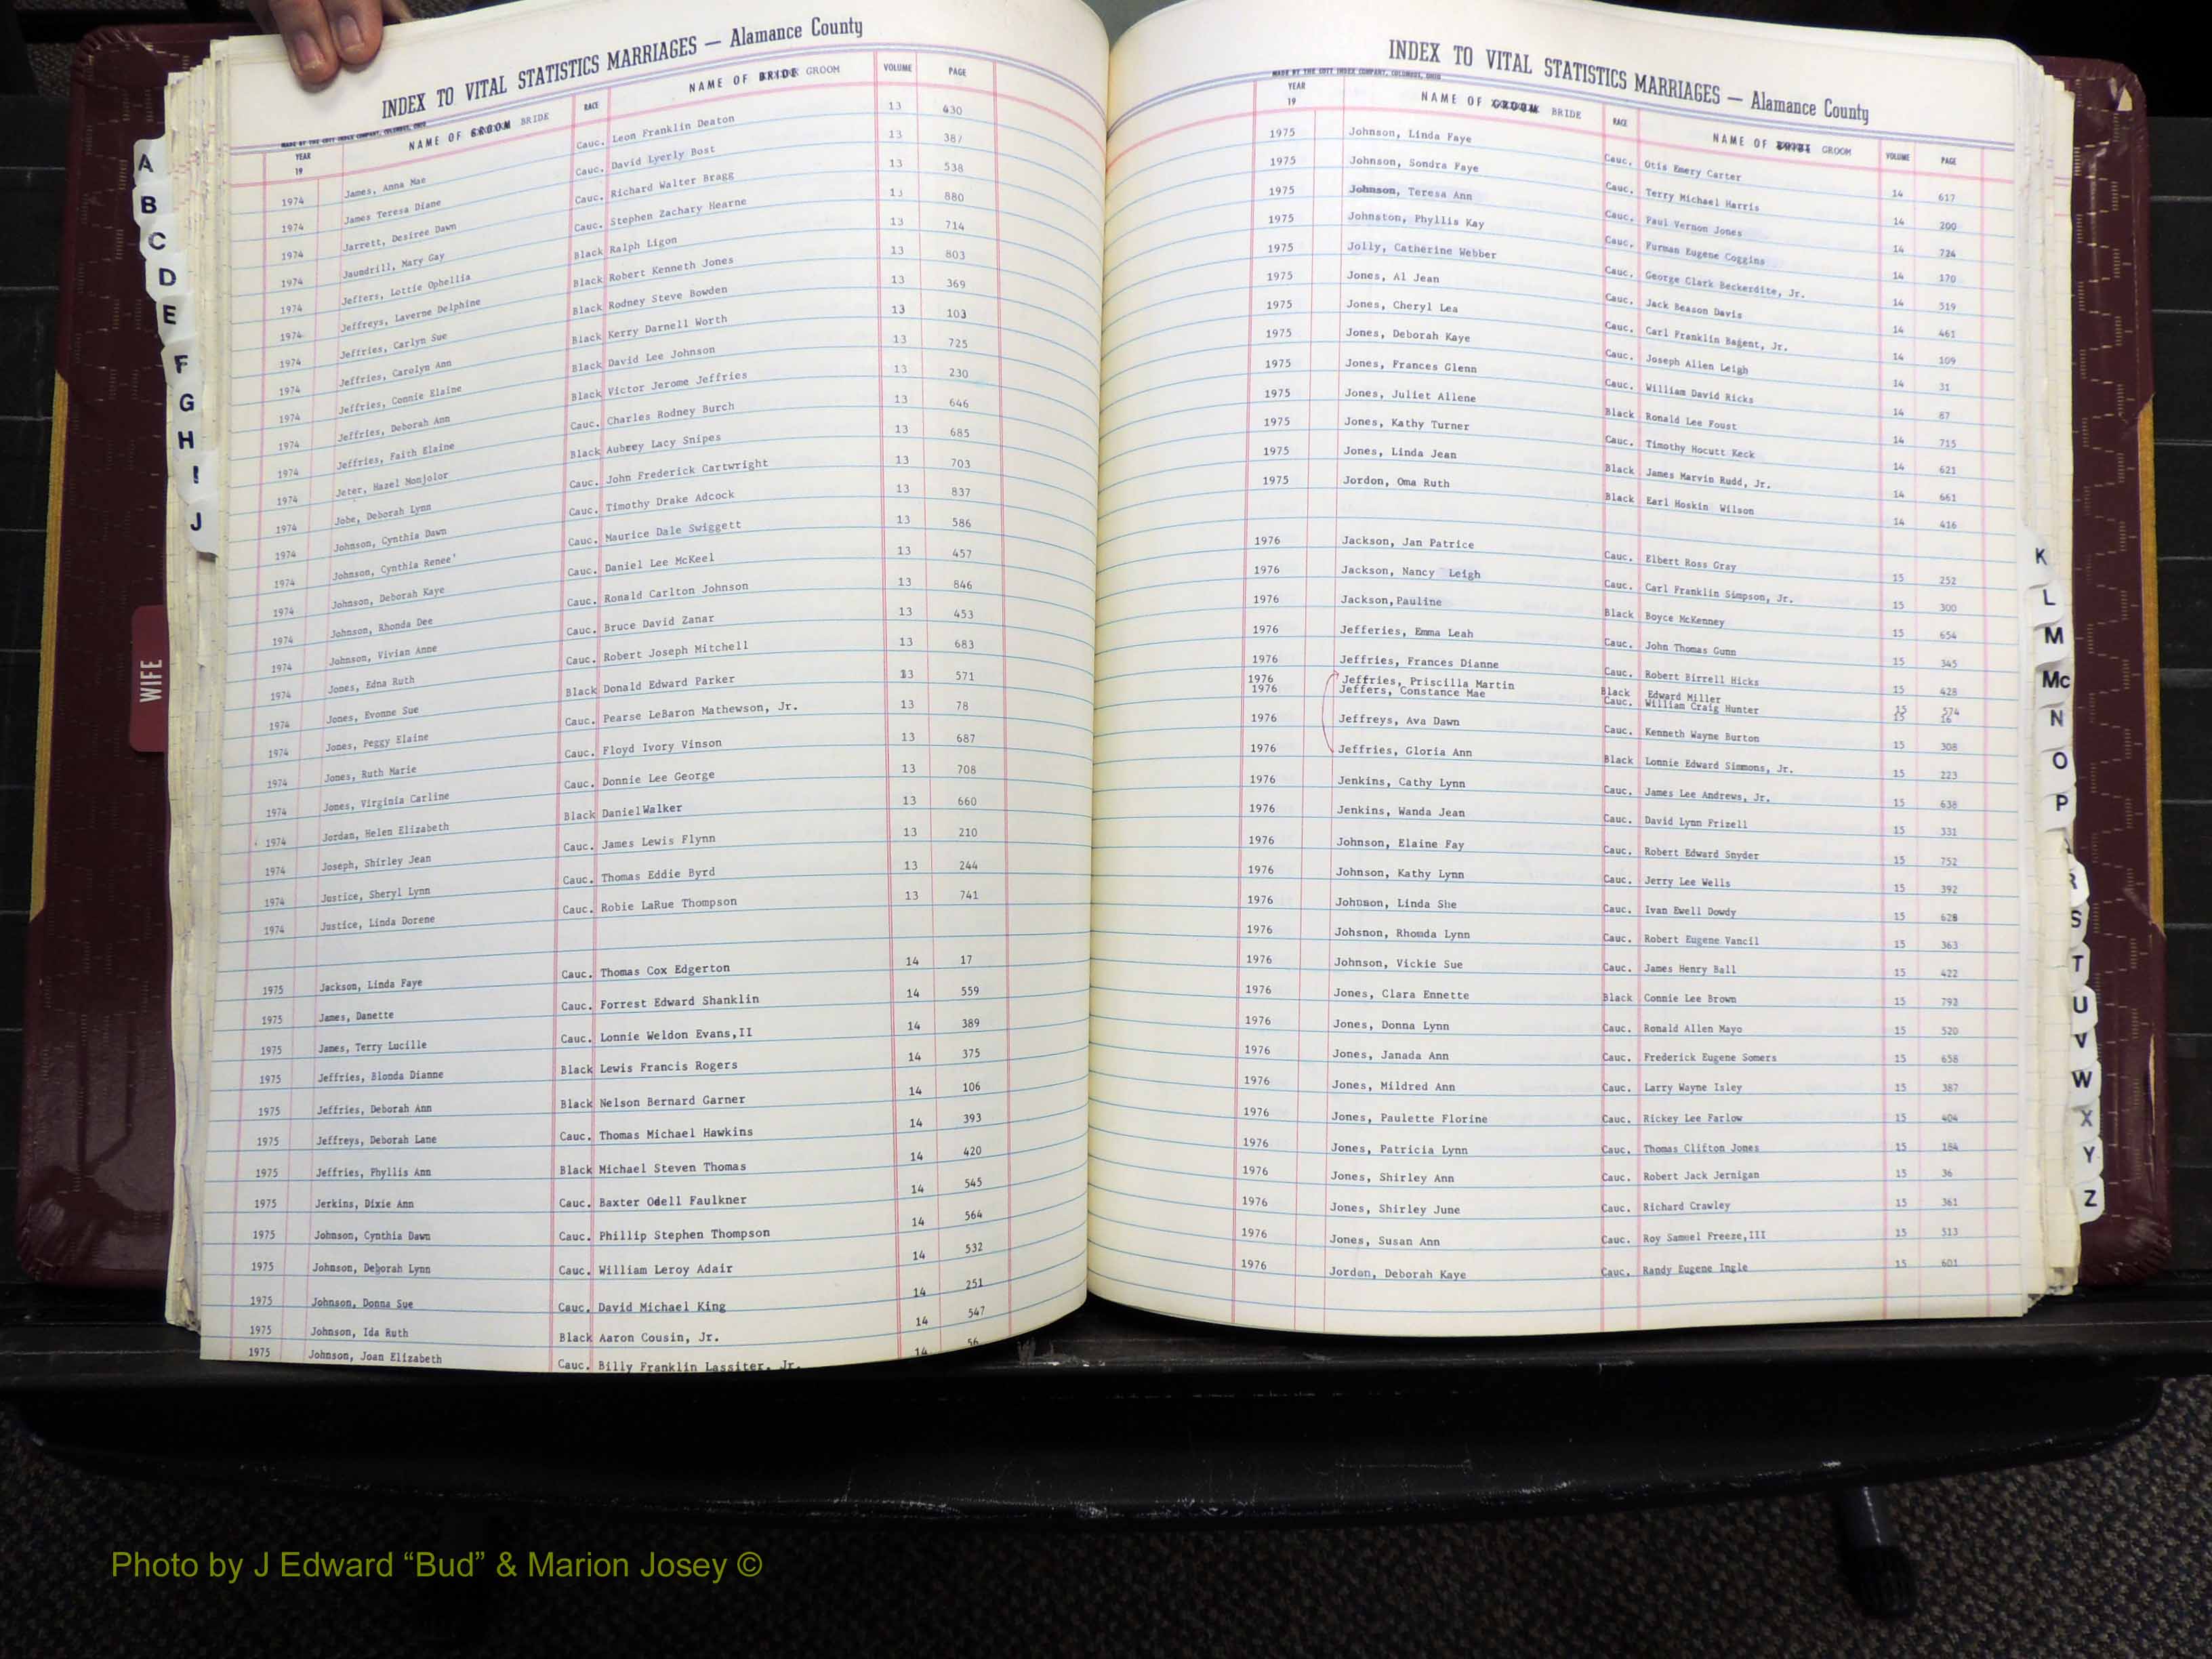 INDEX TO VITAL STATISTICS MARRIAGES — Alamance County
MADE BY THE COTT INDEX COMPANY, COLUMBUS, OHIO
YEAR 19 NAME OF GROOM BRIDE RACE NAME OF BRIDE GROOM VOLUME PAGE
1974 James, Anna Mae Cauc. Leon Franklin Deaton 13 430
1974 James Teresa Diane Cauc. David Lyerly Bost 13 387
1974 Jarrett, Desiree Dawn Cauc. Richard Walter Bragg 13 538
1974 Jaundrill, Mary Gay Cauc. Stephen Zachary Hearne 13 880
1974 Jeffers, Lottie Ophellia Black Ralph Ligon 13 714
1974 Jeffreys, Laverne Delphine Black Robert Kenneth Jones 13 803
1974 Jeffries, Carlyn Sue Black Rodney Steve Bowden 13 369
1974 Jeffries, Carolyn Ann Black Kerry Darnell Worth 13 103
1974 Jeffries, Connie Elaine Black David Lee Johnson 13 725
1974 Jeffries, Deborah Ann Black Victor Jerome Jeffries 13 230
1974 Jeffries, Faith Elaine Cauc. Charles Rodney Burch 13 646
1974 Jeter, Hazel Monjolor Black Aubrey Lacy Snipes 13 685
1974 Jobe, Deborah Lynn Cauc. John Frederick Cartwright 13 703
1974 Johnson, Cynthia Dawn Cauc. Timothy Drake Adcock 13 837
1974 Johnson, Cynthia Renee' Cauc. Maurice Dale Swiggett 13 586
1974 Johnson, Deborah Kaye Cauc. Daniel Lee McKeel 13 457
1974 Johnson, Rhonda Dee Cauc. Ronald Carlton Johnson 13 846
1974 Johnson, Vivian Anne Cauc. Bruce David Zanar 13 453
1974 Jones, Edna Ruth Cauc. Robert Joseph Mitchell 13 683
1974 Jones, Evonne Sue Black Donald Edward Parker 13 571
1974 Jones, Peggy Elaine Cauc. Pearse LeBaron Mathewson, Jr. 13 78
1974 Jones, Ruth Marie Cauc. Floyd Ivory Vinson 13 687
1974 Jones, Virginia Carline Cauc. Donnie Lee George 13 708
1974 Jordan, Helen Elizabeth Black DanielWalker 13 660
1974 Joseph, Shirley Jean Cauc. James Lewis Flynn 13 210
1974 Justice, Sheryl Lynn Cauc. Thomas Eddie Byrd 13 244
1974 Justice, Linda Dorene Cauc. Robie LaRue Thompson 13 741
1975 Jackson, Linda Faye Cauc. Thomas Cox Edgerton 14 17
1975 James, Danette Cauc. Forrest Edward Shanklin 14 559
1975 James, Terry Lucille Cauc. Lonnie Weldon Evans,II 14 389
1975 Jeffries, Blonda Dianne Black Lewis Francis Rogers 14 375
1975 Jeffries, Deborah Ann Black Nelson Bernard Garner 14 106
1975 Jeffreys, Deborah Lane Cauc. Thomas Michael Hawkins 14 393
1975 Jeffries, Phyllis Ann Black Michael Steven Thomas 14 420
1975 Jerkins, Dixie Ann Cauc. Baxter Odell Faulkner 14 545
1975 Johnson, Cynthia Dawn Cauc. Phillip Stephen Thompson 14 564
1975 Johnson, Deborah Lynn Cauc. William Leroy Adair 14 532
1975 Johnson, Donna Sue Cauc. David Michael King 14 251
1975 Johnson, Ida Ruth Black Aaron Cousin, Jr. 14 547
1975 Johnson, Joan Elizabeth Cauc. Billy Franklin Lassiter, Jr. 14 56
A
B
C
D
E
F
G
H
I
J
WIFE
INDEX TO VITAL STATISTICS MARRIAGES — Alamance County
MADE BY THE COTT INDEX COMPANY, COLUMBUS, OHIO
YEAR 19 NAME OF GROOM BRIDE RACE NAME OF BRIDE GROOM VOLUME PAGE
1975 Johnson, Linda Faye Cauc. Otis Emery Carter 14 617
1975 Johnson, Sondra Faye Cauc. Terry Michael Harris 14 200
1975 Johnson, Teresa Ann Cauc. Paul Vernon Jones 14 724
1975 Johnston, Phyllis Kay Cauc. Furman Eugene Coggins 14 170
1975 Jolly, Catherine Webber Cauc. George Clark Beckerdite, Jr. 14 519
1975 Jones, Al Jean Cauc. Jack Beason Davis 14 461
1975 Jones, Cheryl Lea Cauc. Carl Franklin Bagent, Jr. 14 109
1975 Jones, Deborah Kaye Cauc. Joseph Allen Leigh 14 31
1975 Jones, Frances Glenn Cauc. William David Ricks 14 87
1975 Jones, Juliet Allene Black Ronald Lee Foust 14 715
1975 Jones, Kathy Turner Cauc. Timothy Hocutt Keck 14 621
1975 Jones, Linda Jean Black James Marvin Rudd, Jr. 14 661
1975 Jordon, Oma Ruth Black Earl Hoskin Wilson 14 416
1976 Jackson, Jan Patrice Cauc. Elbert Ross Gray 15 252
1976 Jackson, Nancy Leigh Cauc. Carl Franklin Simpson, Jr. 15 300
1976 Jackson,Pauline Black Boyce McKenney 15 654
1976 Jefferies, Emma Leah Cauc. John Thomas Gunn 15 345
1976 Jeffries, Frances Dianne Cauc. Robert Birrell Hicks 15 428
1976 Jeffries, Priscilla Martin Black Edward Miller 15 574
1976 Jeffers, Constance Mae Cauc. William Craig Hunter 15 16
1976 Jeffreys, Ava Dawn Cauc. Kenneth Wayne Burton 15 308
1976 Jeffries, Gloria Ann Black Lonnie Edward Simmons, Jr. 15 223
1976 Jenkins, Cathy Lynn Cauc. James Lee Andrews, Jr. 15 638
1976 Jenkins, Wanda Jean Cauc. David Lynn Frizell 15 331
1976 Johnson, Elaine Fay Cauc. Robert Edward Snyder 15 752
1976 Johnson, Kathy Lynn Cauc. Jerry Lee Wells 15 392
1976 Johnson, Linda She Cauc. Ivan Ewell Dowdy 15 628
1976 Johsnon, Rhonda Lynn Cauc. Robert Eugene Vancil 15 363
1976 Johnson, Vickie Sue Cauc. James Henry Ball 15 422
1976 Jones, Clara Ennette Black Connie Lee Brown 15 793
1976 Jones, Donna Lynn Cauc. Ronald Allen Mayo 15 520
1976 Jones, Janada Ann Cauc. Frederick Eugene Somers 15 658
1976 Jones, Mildred Ann Cauc. Larry Wayne Isley 15 387
1976 Jones, Paulette Florine Cauc. Rickey Lee Farlow 15 404
1976 Jones, Patricia Lynn Cauc. Thomas Clifton Jones 15 184
1976 Jones, Shirley Ann Cauc. Robert Jack Jernigan 15 36
1976 Jones, Shirley June Cauc. Richard Crawley 15 361
1976 Jones, Susan Ann Cauc. Roy Samuel Freeze,III 15 513
1976 Jordan, Deborah Kaye Cauc. Randy Eugene Ingle 15 601
K
L
M
Mc
N
O
P
R
S
T
U
V
W
X
Y
Z
Photo by J Edward “Bud” & Marion Josey ©